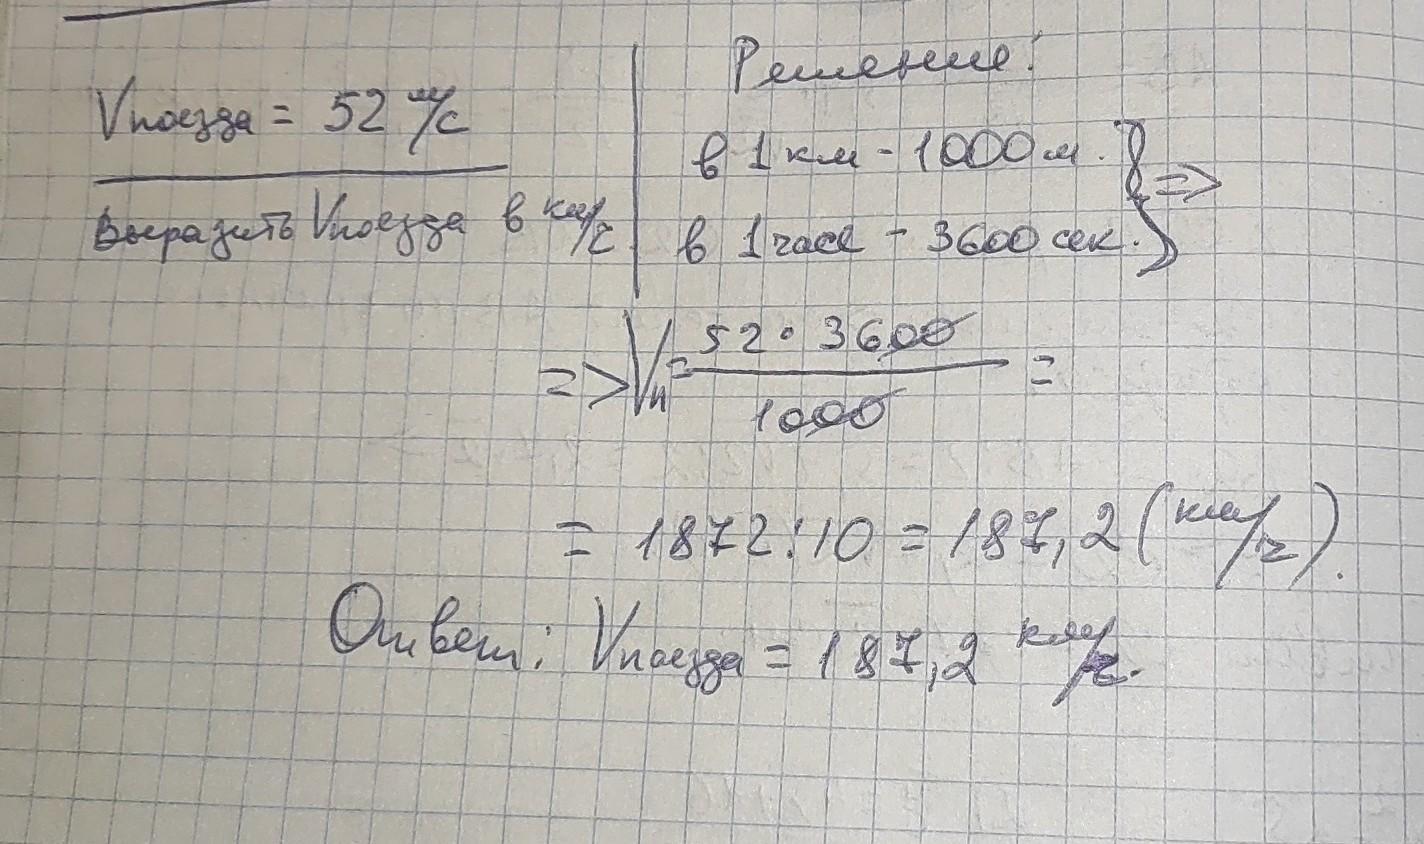 Vпоезда = 52 м/с
Выразить Vпоезда в км/ч
Решение:
в 1 км - 1000 м. } =>
в 1 часе - 3600 сек. }
=> Vп = 52 · 3600 / 1000 =
= 1872 : 10 = 187,2 (км/ч).
Ответ: Vпоезда = 187,2 км/ч.